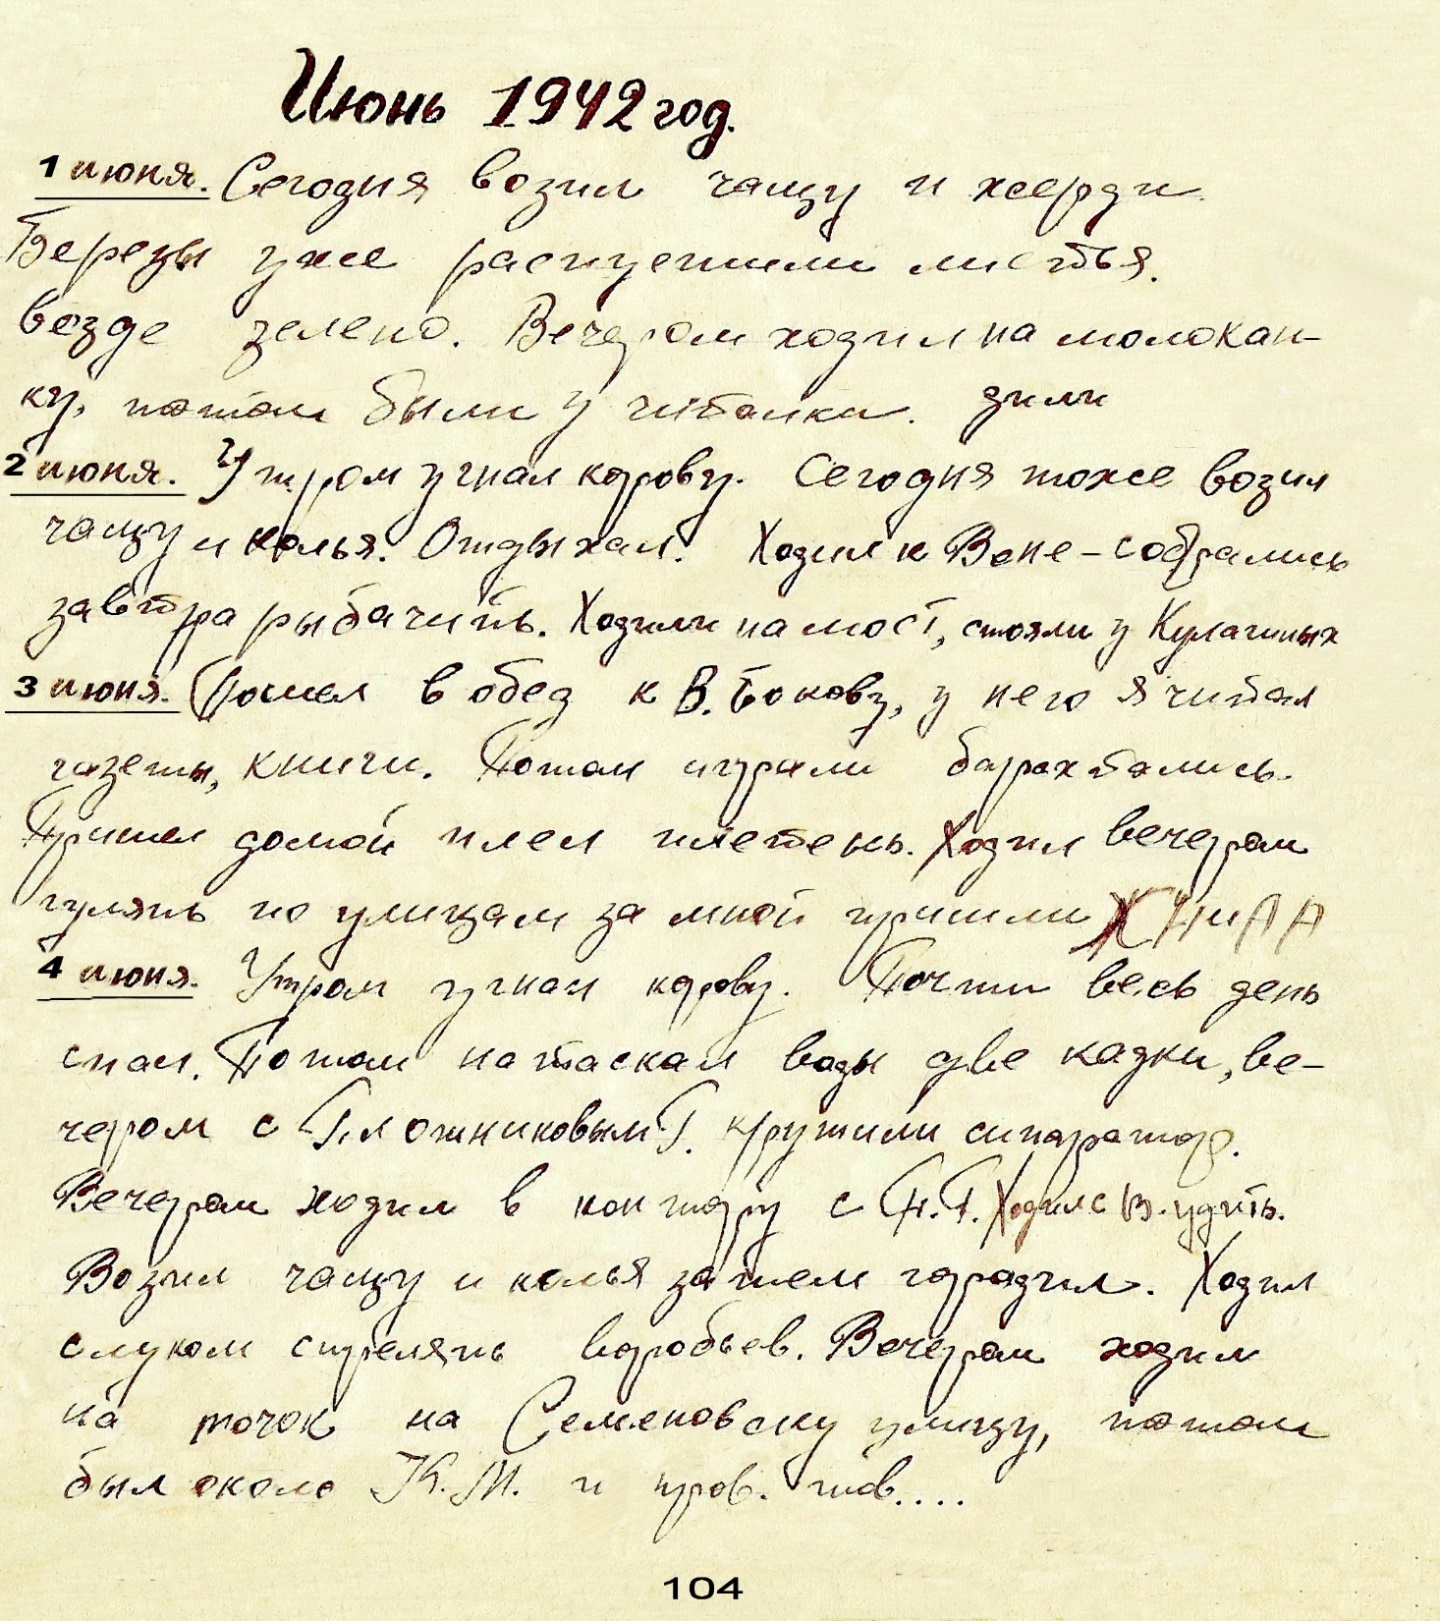 Июнь 1942 год.
1 июня. Сегодня возил чащу и жерди
Березы уже распустили листья.
везде зелено. Вечером ходил на молокан-
ку, потом были у читалки. дили
2 июня. Утром угнал корову. Сегодня тоже возил
чащу и колья. Отдыхал. Ходил к Ване - собрались
завтра рыбачить. Ходили на мост, стояли у Кулагиных
3 июня. Пошел в обед к В. Бокову, у него я читал
газеты, книги. Потом играли барахтались.
Пришел домой плел плетень. Ходил вечером
гулять по улицам за мной пришли
4 июня. Утром угнал корову. Почти весь день
спал. Потом натаскал воды две кадки, ве-
чером с Плотниковым Г. крутили сипаратор.
Вечером ходил в контору с П.Г. Ходил с В. удить.
Возил чащу и колья затем городил. Ходил
слуком стрелять воробьев. Вечером ходил
на точок на Семеновску улицу, потом
был около К.М. и пров. тов....
104